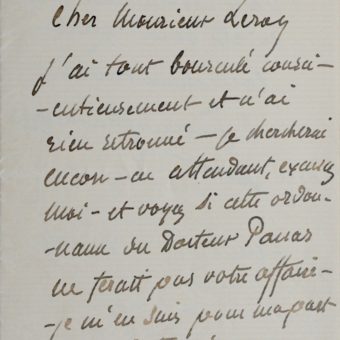 Cher Monsieur Leroy
J'ai tout bousculé consci-
-entieusement et n'ai
rien retrouvé - je chercherai
encore - en attendant, excusez
moi - et voyez si cette ordon-
-nance du Docteur Panas
ne ferait pas votre affaire -
- je m'en suis pour ma part